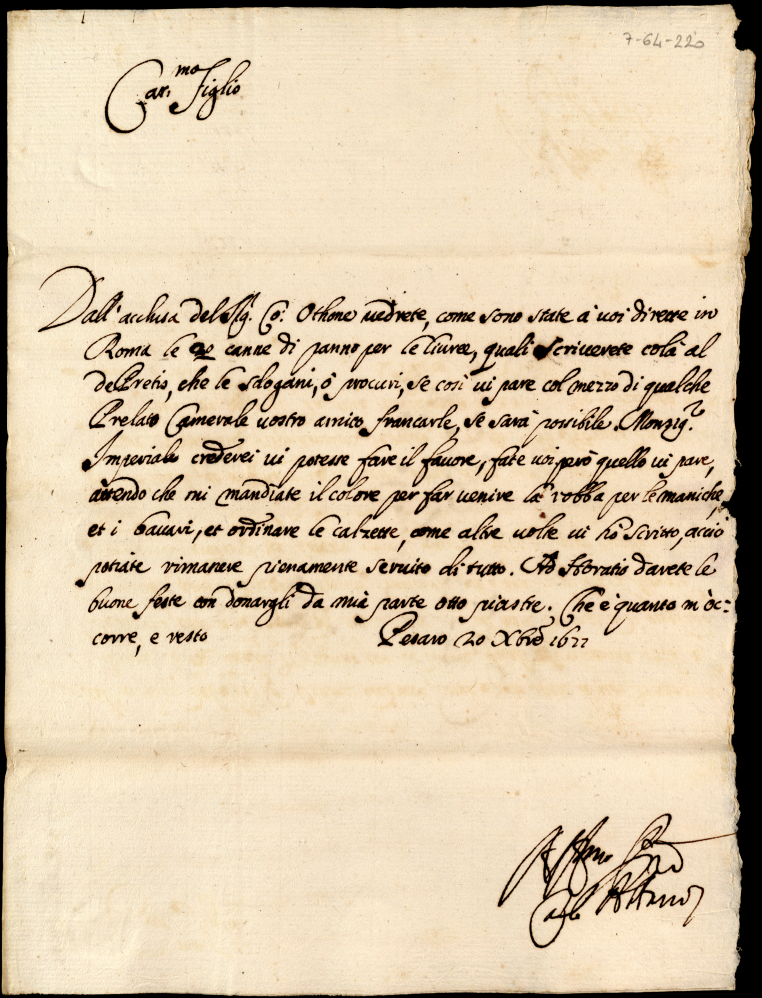 7-64-220
Car.mo Figlio
Dall'acclusa del Sig.r Co: Othone vedrete, come sono state à voi dirette in
Roma le canne di panno per le livree, quali scriverete colà al
de Pretis, che le sdogani, ò procuri, se così vi pare col mezzo di qualche
Prelato Camerale vostro amico francarle, se sarà possibile. Monsig.r
Imperiale crederei vi potesse fare il favore, fate voi però quello vi pare,
attendo che mi mandiate il colore per far venire la robba per le maniche,
et i bavari, et ordinare le calzette, come altre volte vi hò scritto, acciò
potiate rimanere pienamente servito di tutto. Ad Horatio darete le
buone feste con donargli da mia parte otto piastre. Che è quanto m'oc-
corre, e resto Pesaro 20 Xbre 1677
Aff.mo Pad